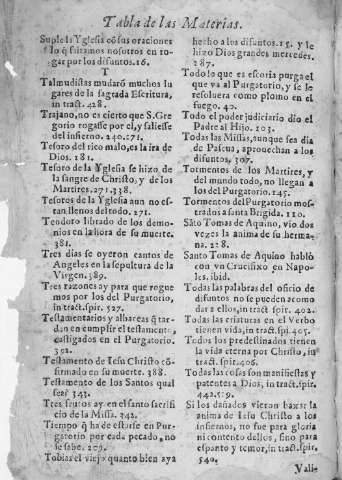 Tabla de las Materias.
Suple la Yglesia cõ sus oraciones
lo q̃ faltamos nosotros en ro-
gar por los difuntos.16.
T
Talmudistas mudarõ muchos lu
gares de la sagrada Escritura,
in tract. 428.
Trajano, no es cierto que S. Gre
gorio rogasse por el, y saliesse
del infierno. 240.271.
Tesoro del rico malo, es la ira de
Dios. 181.
Tesoro de la Yglesia se hizo, de
la sangre de Christo, y de los
Martires.271.338.
Tesoros de la Yglesia aun no es-
tan llenos del todo. 271.
Teodoro librado de los demo-
nios en la hora de su muerte.
381.
Tres dias se oyeron cantos de
Angeles en la sepultura de la
Virgen. 389.
Tres razones ay para que rogue
mos por los del Purgatorio,
in tract. spir. 527.
Testamentarios y albaceas q̃ tar-
dan en cumplir el testamento,
castigados en el Purgatorio.
392.
Testamento de Iesu Christo cõ-
firmado en su muerte. 388.
Testamento de los Santos qual
sea? 343.
Tres frutos ay en el santo sacrifi
cio de la Missa. 342.
Tiempo q̃ ha de estarse en Pur-
gatorio por cada pecado, no
se sabe.
Tobias el viejo quanto bien aya
hecho a los difuntos.15. y le
hizo Dios grandes mercedes.
287.
Todo lo que es escoria purga el
que va al Purgatorio, y se le
resoluera como plomo en el
fuego. 40.
Todo el poder judiciario dio el
Padre al Hijo. 103.
Todas las Missas, aunque sea dia
de Pascua, aprouechan a los
difuntos, 307.
Tormentos de los Martires, y
del mundo todo, no llegan a
los del Purgatorio. 145.
Tormentos del Purgatorio mos-
trados a santa Brigida. 110.
Sãto Tomas de Aquino, vio dos
vezes la anima de su herma-
na. 228.
Santo Tomas de Aquino hablò
con vn Crucifixo en Napo-
les. ibid.
Todas las palabras del oficio de
difuntos no se pueden acomo
dar a ellos, in tract. spir. 402.
Todas las criaturas en el Verbo
tienen vida, in tract. spi. 405.
Todos los predestinados tienen
la vida eterna por Christo, in
tract. spir.406.
Todas las cosas son manifiestas y
patentes a Dios, in tract. spir.
442.519.
Si los dañados vieron baxar la
anima de Iesu Christo a los
infiernos, no fue para gloria
ni contento dellos, sino para
espanto y temor, in tract. spir.
540.
Vali-